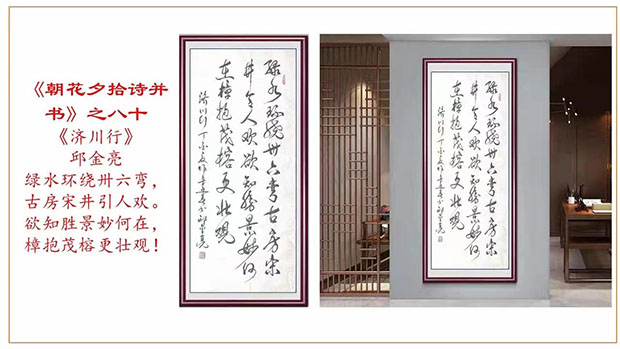 《朝花夕拾诗并
书》之八十
《济川行》
邱金亮
绿水环绕卅六弯，
古房宋井引人欢。
欲知胜景妙何在，
樟抱茂榕更壮观！
绿水环绕卅六弯古房宋
井引人欢欲知胜景妙何
在樟抱茂榕更壮观
济川行
绿水环绕卅六弯古房宋
井引人欢欲知胜景妙何
在樟抱茂榕更壮观
济川行